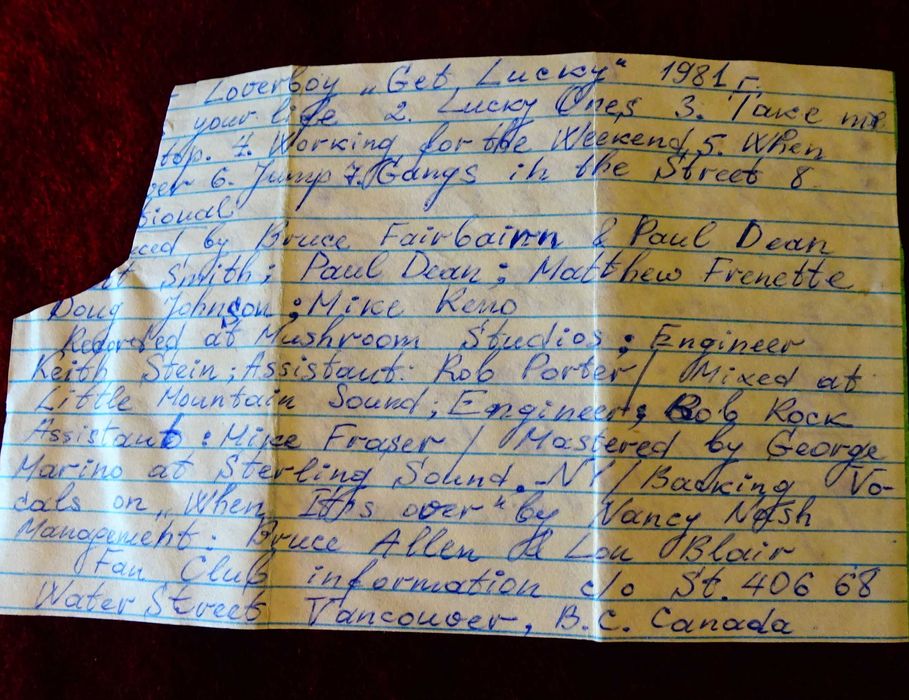 - Loverboy „Get Lucky“ 1981 г.
your life 2. Lucky Ones 3. Take me
top. 4. Working for the Weekend 5. When
er 6. Jump 7. Gangs in the Street 8.
sional
ced by Bruce Fairbairn & Paul Dean
Smith; Paul Dean; Matthew Frenette
Doug Johnson; Mike Reno
Recorded at Mushroom Studios; Engineer
Keith Stein; Assistant: Rob Porter/ Mixed at
Little Mountain Sound; Engineer; Bob Rock
Assistant: Mike Fraser / Mastered by George
Marino at Sterling Sound.-NY/Backing Vo-
cals on „When It's over“ by Nancy Nash
Management: Bruce Allen & Lou Blair
Fan Club information c/o St. 406 68
Water Street Vancouver, B.C. Canada